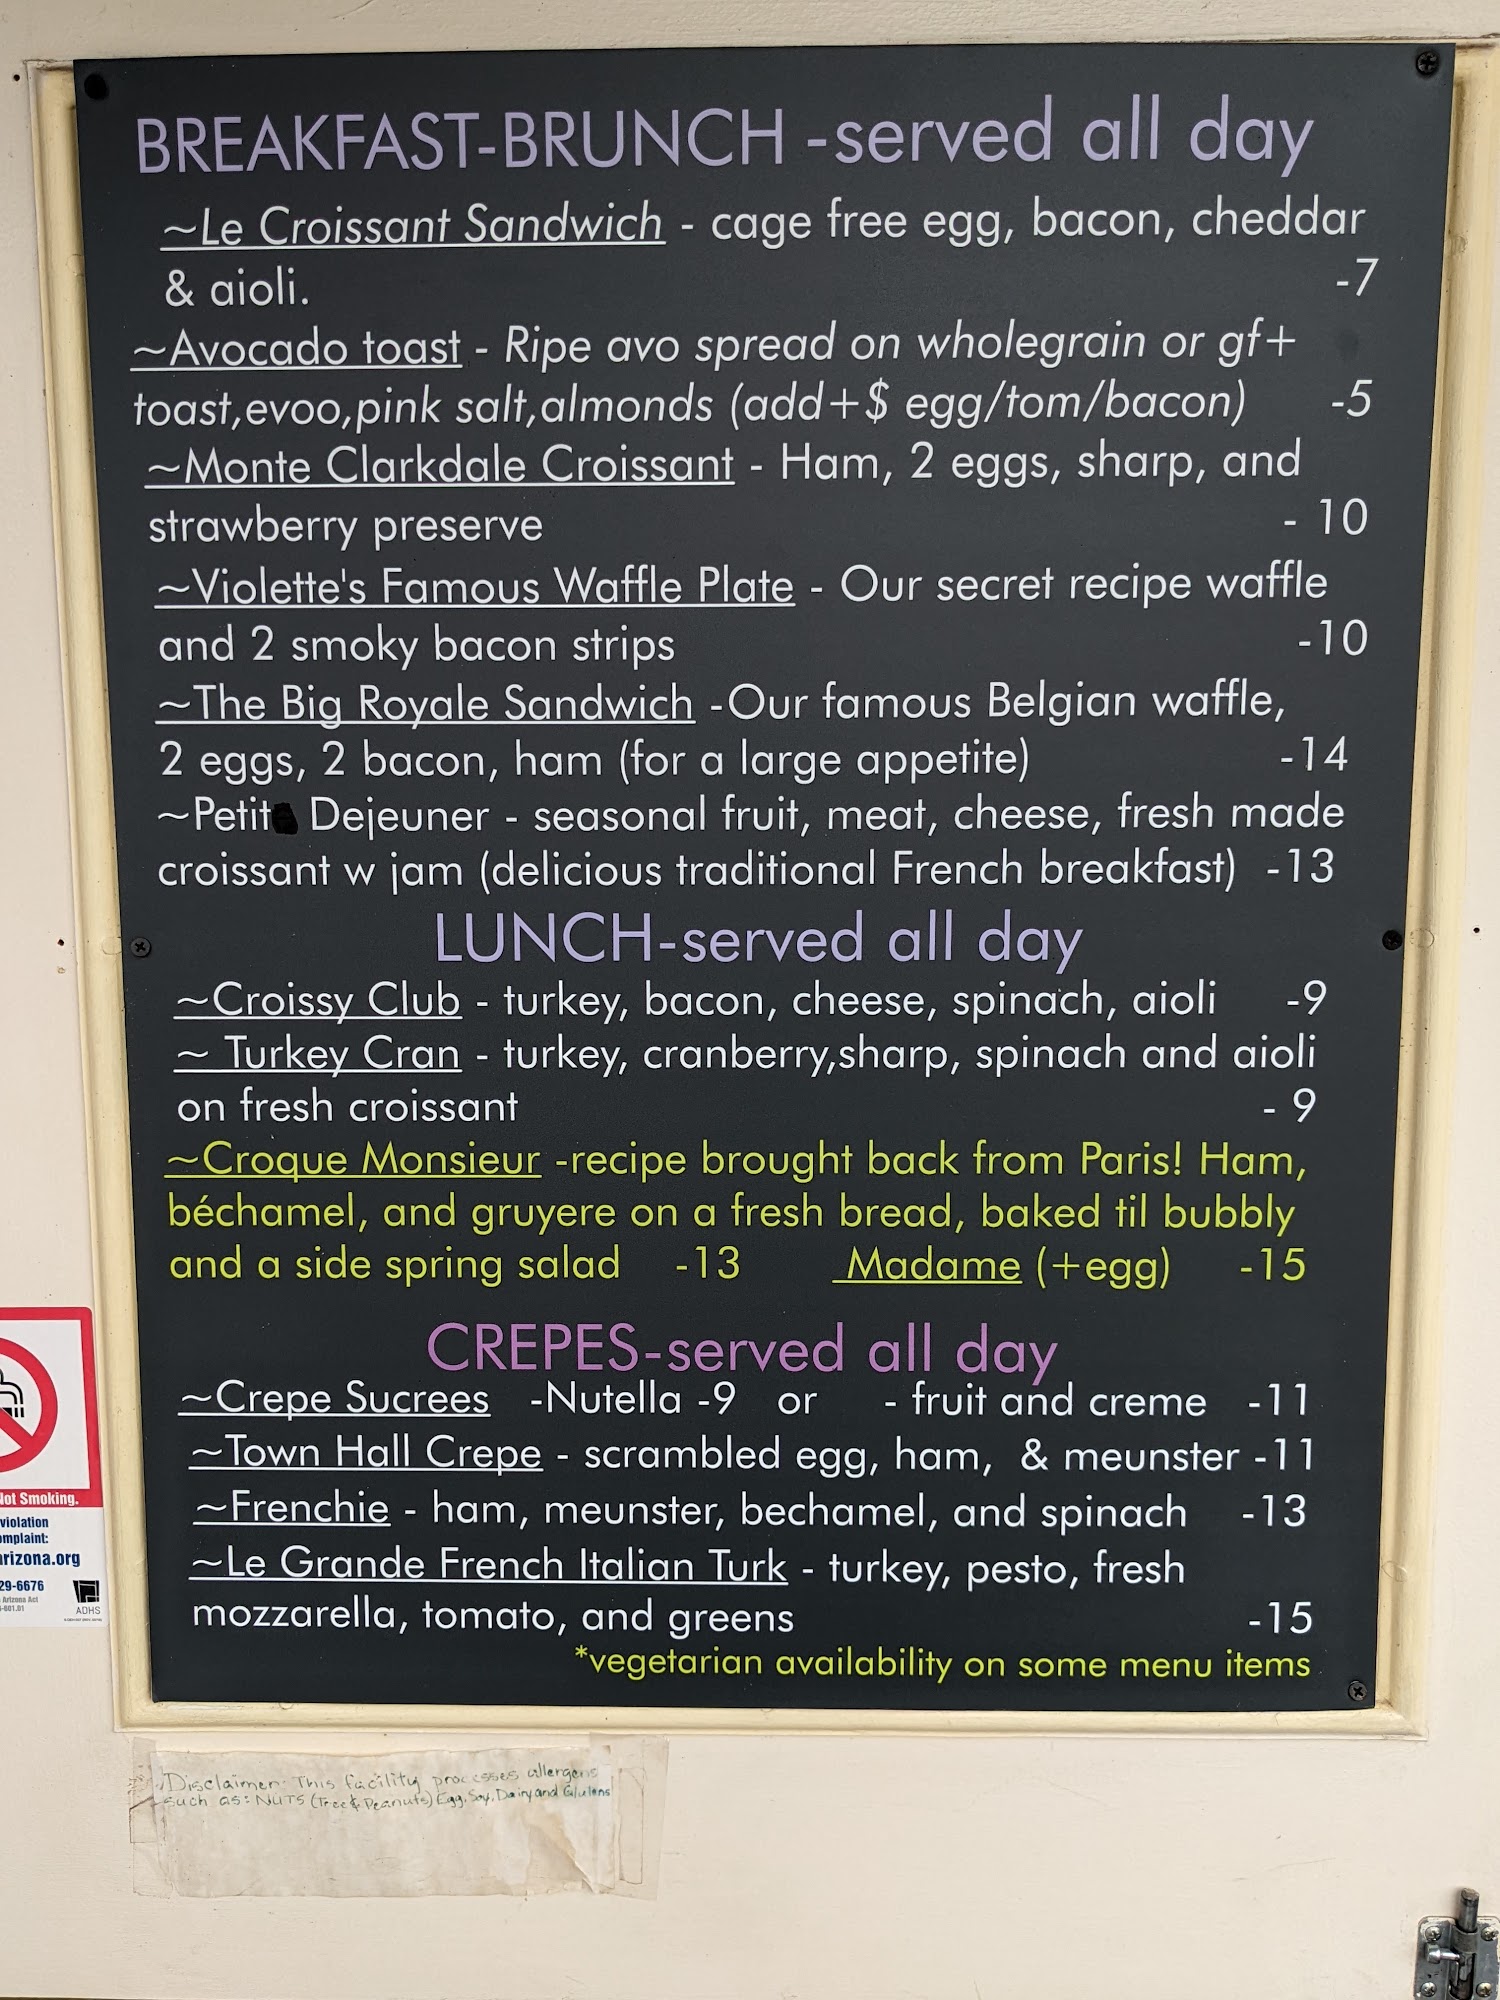 BREAKFAST-BRUNCH -served all day
~Le Croissant Sandwich - cage free egg, bacon, cheddar
& aioli. -7
~Avocado toast - Ripe avo spread on wholegrain or gf+
toast,evoo,pink salt,almonds (add+$ egg/tom/bacon) -5
~Monte Clarkdale Croissant - Ham, 2 eggs, sharp, and
strawberry preserve - 10
~Violette's Famous Waffle Plate - Our secret recipe waffle
and 2 smoky bacon strips -10
~The Big Royale Sandwich -Our famous Belgian waffle,
2 eggs, 2 bacon, ham (for a large appetite) -14
~Petit Dejeuner - seasonal fruit, meat, cheese, fresh made
croissant w jam (delicious traditional French breakfast) -13
LUNCH-served all day
~Croissy Club - turkey, bacon, cheese, spinach, aioli -9
~ Turkey Cran - turkey, cranberry,sharp, spinach and aioli
on fresh croissant - 9
~Croque Monsieur -recipe brought back from Paris! Ham,
béchamel, and gruyere on a fresh bread, baked til bubbly
and a side spring salad -13 Madame (+egg) -15
CREPES-served all day
~Crepe Sucrees -Nutella -9 or - fruit and creme -11
~Town Hall Crepe - scrambled egg, ham, & meunster -11
~Frenchie - ham, meunster, bechamel, and spinach -13
~Le Grande French Italian Turk - turkey, pesto, fresh
mozzarella, tomato, and greens -15
*vegetarian availability on some menu items
Not Smoking.
violation
omplaint:
arizona.org
29-6676
Arizona Act
-601.01
ADHS
Disclaimer: This facility processes allergens
such as: NUTS (Tree & Peanuts) Egg, Soy, Dairy and Glutens